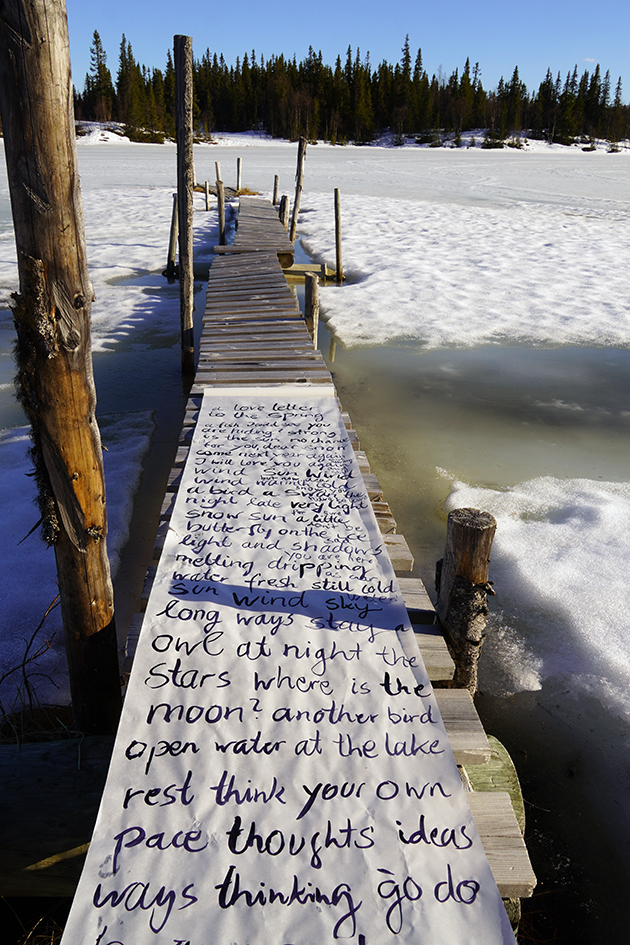 a love letter
to the spring
a fish I did see you
are hiding strong
is the sun no chance
for you, dear snow
come next year again
I will love you
wind sun wind
wind warm cold
a bird a swan
night late very light
snow sun a little
butterfly on the ice
light and shadows
you are here
melting dripping
water fresh still cold
sun wind sky water
long ways stay a
owl at night the
stars where is the
moon? another bird
open water at the lake
rest think your own
pace thoughts ideas
ways thinking go do